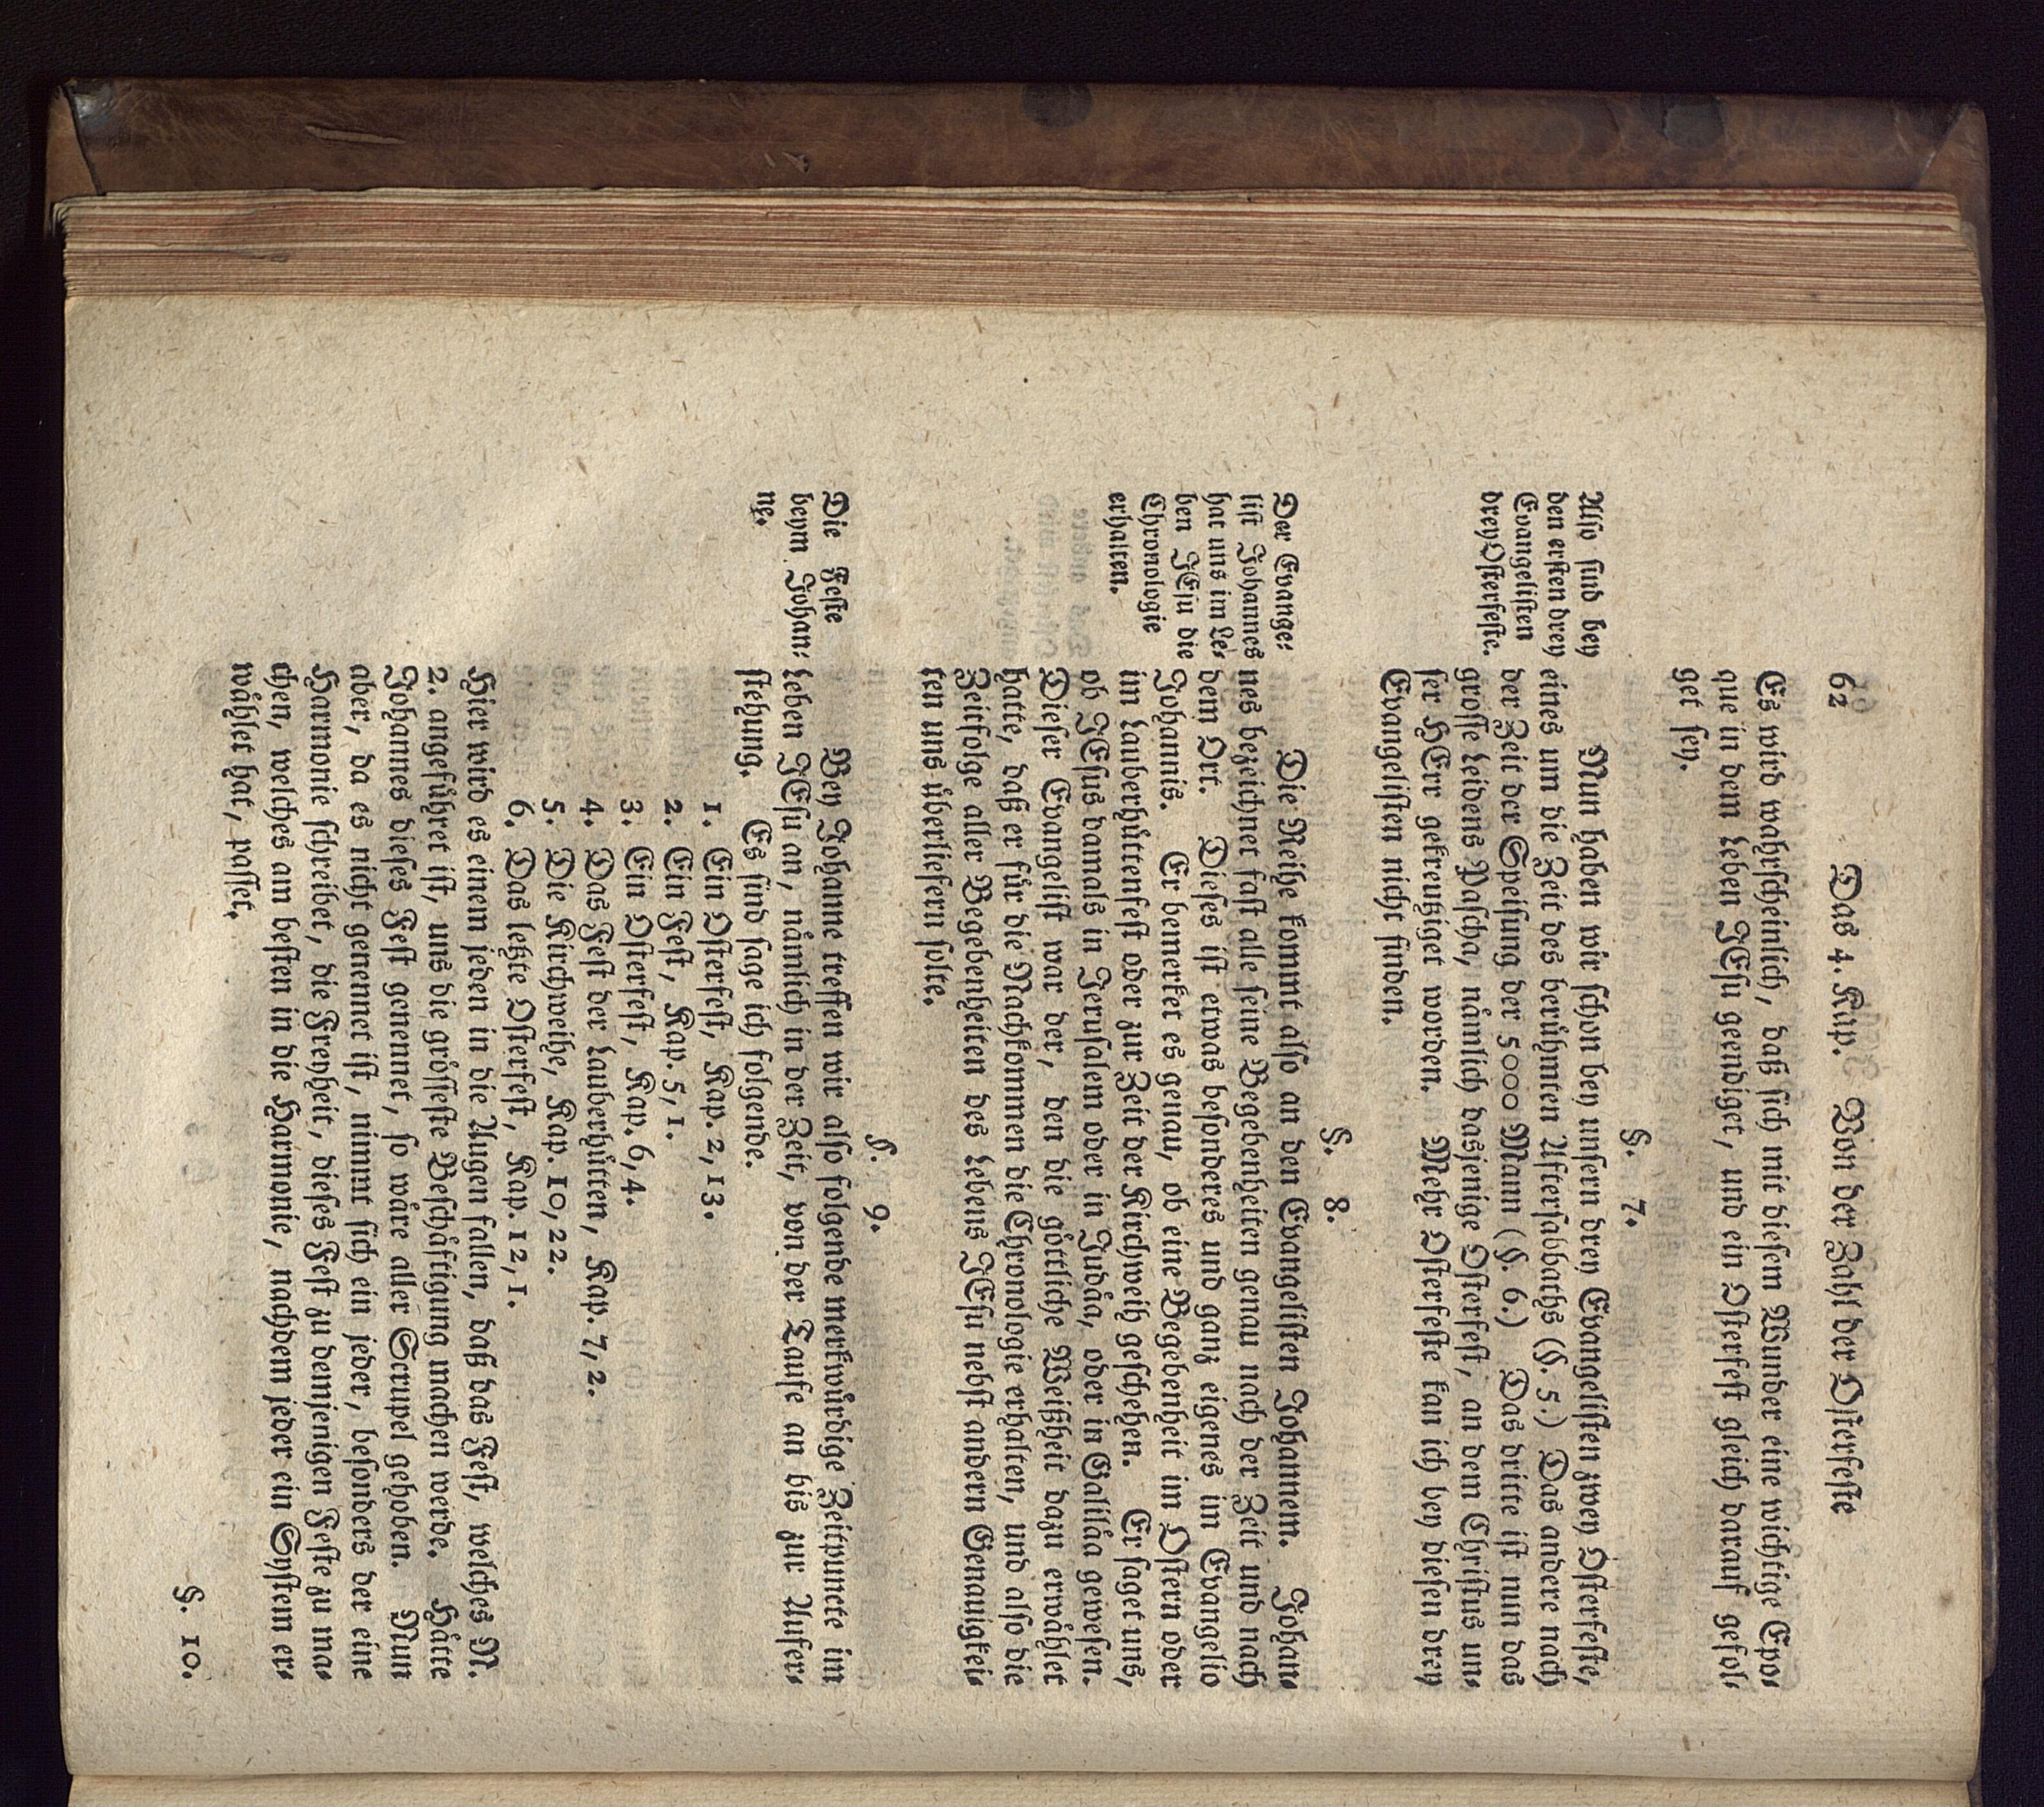 62 Das 4. Kap. Von der Zahl der Osterfeste
Es wird wahrscheinlich, daß sich mit diesem Wunder eine wichtige Epo-
que in dem Leben JEsu geendiget, und ein Osterfest gleich darauf gefol-
get sey.
§. 7.
Also sind bey
den ersten drey
Evangelisten
drey Osterfeste.
Nun haben wir schon bey unsern drey Evangelisten zwey Osterfeste,
eines um die Zeit des berühmten Aftersabbaths (§. 5.) Das andere nach
der Zeit der Speisung der 5000 Mann (§. 6.) Das dritte ist nun das
grosse Leidens Pascha, nämlich dasjenige Osterfest, an dem Christus un-
ser HErr gekreutziget worden. Mehr Osterfeste kan ich bey diesen drey
Evangelisten nicht finden.
§. 8.
Der Evange-
list Johannes
hat uns im Le-
ben JEsu die
Chronologie
erhalten.
Die Reihe kommt also an den Evangelisten Johannem. Johan-
nes bezeichnet fast alle seine Begebenheiten genau nach der Zeit und nach
dem Ort. Dieses ist etwas besonderes und ganz eigenes im Evangelio
Johannis. Er bemerket es genau, ob eine Begebenheit im Ostern oder
im Lauberhüttenfest oder zur Zeit der Kirchweih geschehen. Er saget uns,
ob JEsus damals in Jerusalem oder in Judäa, oder in Galiläa gewesen.
Dieser Evangelist war der, den die göttliche Weißheit dazu erwählet
hatte, daß er für die Nachkommen die Chronologie erhalten, und also die
Zeitfolge aller Begebenheiten des Lebens JEsu nebst andern Genauigkei-
ten uns überliefern solte.
§. 9.
Die Feste
beym Johan-
ne.
Bey Johanne treffen wir also folgende merkwürdige Zeitpuncte im
Leben JEsu an, nämlich in der Zeit, von der Taufe an bis zur Aufer-
stehung. Es sind sage ich folgende.
1. Ein Osterfest, Kap. 2, 13.
2. Ein Fest, Kap. 5, 1.
3. Ein Osterfest, Kap. 6, 4.
4. Das Fest der Lauberhütten, Kap. 7, 2.
5. Die Kirchweihe, Kap. 10, 22.
6. Das letzte Osterfest, Kap. 12, 1.
Hier wird es einem jeden in die Augen fallen, daß das Fest, welches N.
2. angeführet ist, uns die grösseste Beschäftigung machen werde. Hätte
Johannes dieses Fest genennet, so wäre aller Scrupel gehoben. Nun
aber, da es nicht genennet ist, nimmt sich ein jeder, besonders der eine
Harmonie schreibet, die Freyheit, dieses Fest zu demjenigen Feste zu ma-
chen, welches am besten in die Harmonie, nachdem jeder ein System er-
wählet hat, passet.
§. 10.